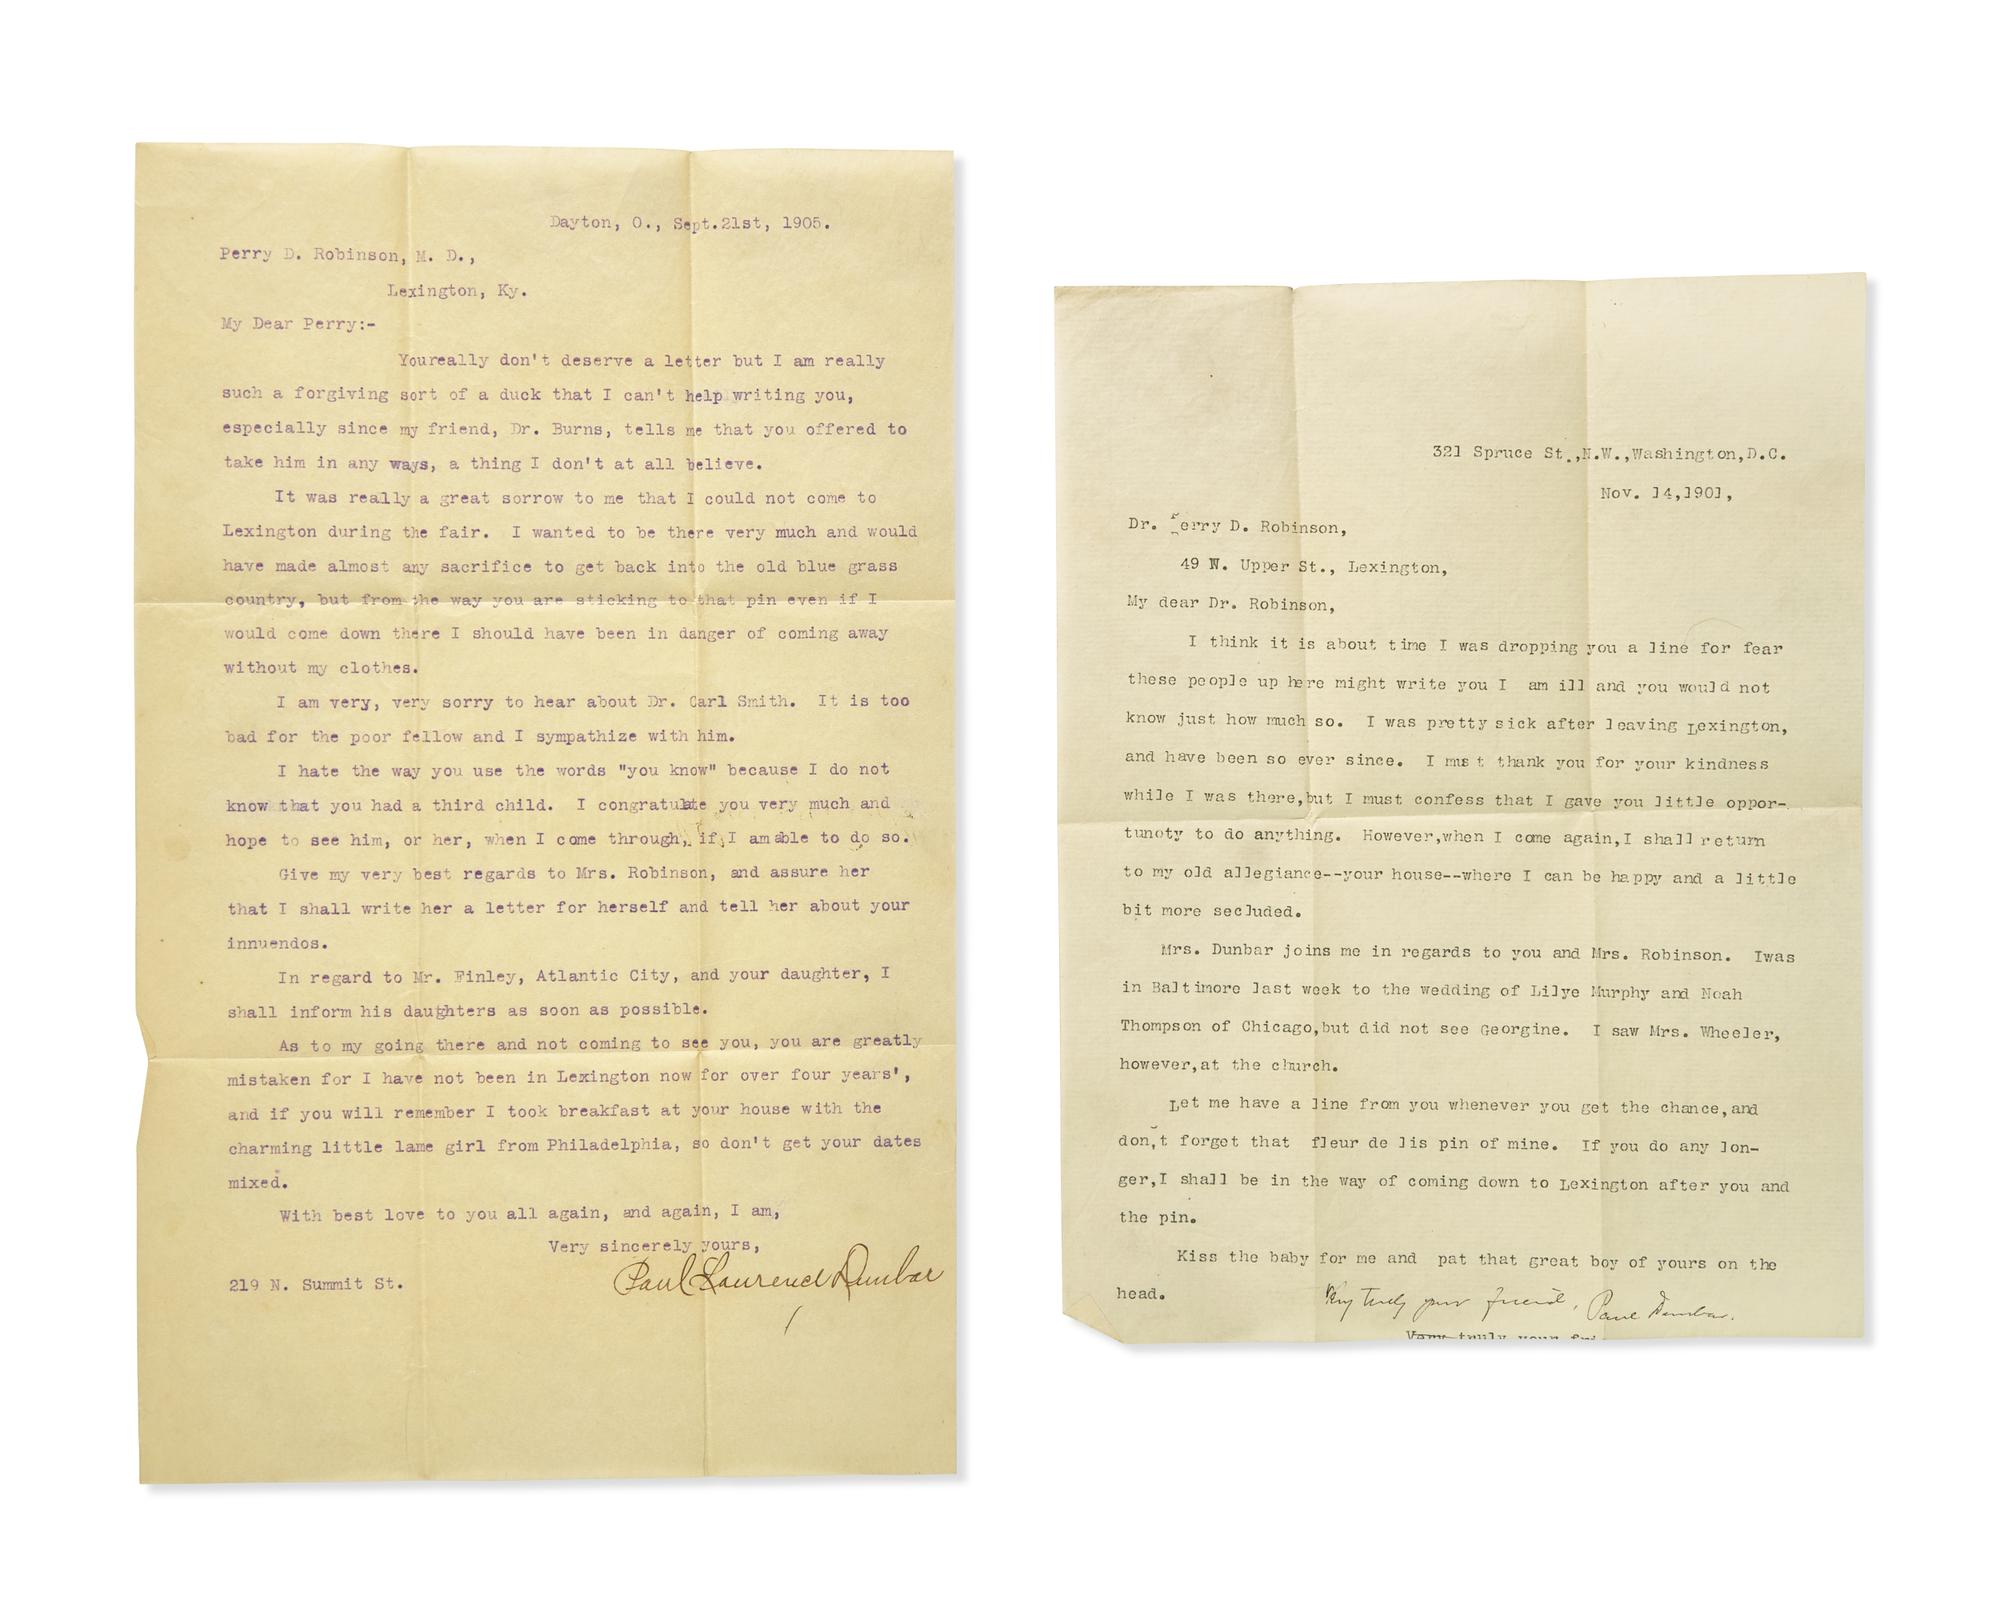 Dayton, O., Sept.21st, 1905.
Perry D. Robinson, M. D.,
Lexington, Ky.
My Dear Perry:-
Youreally don't deserve a letter but I am really
such a forgiving sort of a duck that I can't help writing you,
especially since my friend, Dr. Burns, tells me that you offered to
take him in any ways, a thing I don't at all believe.
It was really a great sorrow to me that I could not come to
Lexington during the fair. I wanted to be there very much and would
have made almost any sacrifice to get back into the old blue grass
country, but from the way you are sticking to that pin even if I
would come down there I should have been in danger of coming away
without my clothes.
I am very, very sorry to hear about Dr. Carl Smith. It is too
bad for the poor fellow and I sympathize with him.
I hate the way you use the words "you know" because I do not
know that you had a third child. I congratulate you very much and
hope to see him, or her, when I come through, if I am able to do so.
Give my very best regards to Mrs. Robinson, and assure her
that I shall write her a letter for herself and tell her about your
innuendos.
In regard to Mr. Finley, Atlantic City, and your daughter, I
shall inform his daughters as soon as possible.
As to my going there and not coming to see you, you are greatly
mistaken for I have not been in Lexington now for over four years',
and if you will remember I took breakfast at your house with the
charming little lame girl from Philadelphia, so don't get your dates
mixed.
With best love to you all again, and again, I am,
Very sincerely yours,
Paul Laurence Dunbar
219 N. Summit St.
321 Spruce St.,N.W.,Washington,D.C.
Nov. 14,1901,
Dr. Perry D. Robinson,
49 W. Upper St., Lexington,
My dear Dr. Robinson,
I think it is about time I was dropping you a line for fear
these people up here might write you I am ill and you would not
know just how much so. I was pretty sick after leaving Lexington,
and have been so ever since. I must thank you for your kindness
while I was there,but I must confess that I gave you little oppor-
tunoty to do anything. However,when I come again,I shall return
to my old allegiance--your house--where I can be happy and a little
bit more secluded.
Mrs. Dunbar joins me in regards to you and Mrs. Robinson. Iwas
in Baltimore last week to the wedding of Lilye Murphy and Noah
Thompson of Chicago,but did not see Georgine. I saw Mrs. Wheeler,
however,at the church.
Let me have a line from you whenever you get the chance,and
don,t forget that fleur de lis pin of mine. If you do any lon-
ger,I shall be in the way of coming down to Lexington after you and
the pin.
Kiss the baby for me and pat that great boy of yours on the
head.
Very truly your friend, Paul Dunbar.
Very truly your fri